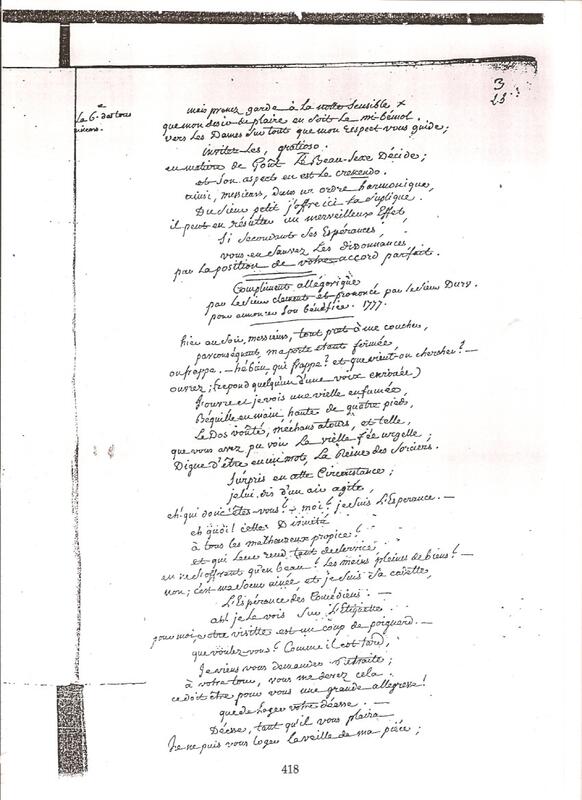 3
23
la 6.e des tons
mineurs.
mais prenez garde à la note sensible x
que mon desir de plaire en soit le mi-bémol.
vers les Dames sur tout que mon respect vous guide;
invitez les, gratioso.
en matiere de Goût le Beau-Sexe Décide;
et son aspect en est le crescendo.
ainsi, messieurs, dans un ordre harmonique,
Du Sieur petit j'offre ici la suplique.
il peut en résulter un merveilleux Effet,
Si secondant ses Espérances,
vous en sauvez les dissonnances
par la position de votre accord parfait.
Compliment allégorique
par le sieur clement et prononcé par le sieur Dury.
pour annoncer son bénéfice. 1777.
hier au soir, messieurs, tout pret à me coucher,
par conséquent, ma porte étant fermée,
on frappe. - hé bien, qui frappe? et que vient-on chercher? -
ouvrez; (repond quelqu'un d'une voix enrouée)
J'ouvre et je vois une vielle enfumée
Béquille en main, haute de quatre pieds,
Le Dos vouté, méchans atours, et telle,
que vous avez pu voir la vielle fée urgelle;
Digne d'être en un mot, la Reine des Sorciers.
Surpris en cette Circonstance;
je lui dis d'un air agile,
eh! qui donc êtes-vous? - moi? je suis l'Esperance. -
eh quoi! cette Divinité
à tous les malheureux propice!
et qui leur rend tant de service,
en ne s'offrant qu'en beau? les mains pleines de biens? -
non; c'est ma soeur ainée et je suis sa cadette,
L'Espérance des Comédiens. -
ah! je le vois sur l'Etiquette.
pour moi votre visitte est un coup de poignard. -
que voulez-vous? Comme il est tard,
Je viens vous demander retraite;
à votre tour, vous me devez cela.
ce doit être pour vous une grande allegresse!
que de loger votre déesse. -
Déesse, tant qu'il vous plaira
Je ne puis vous loger la veille de ma piéce;
418